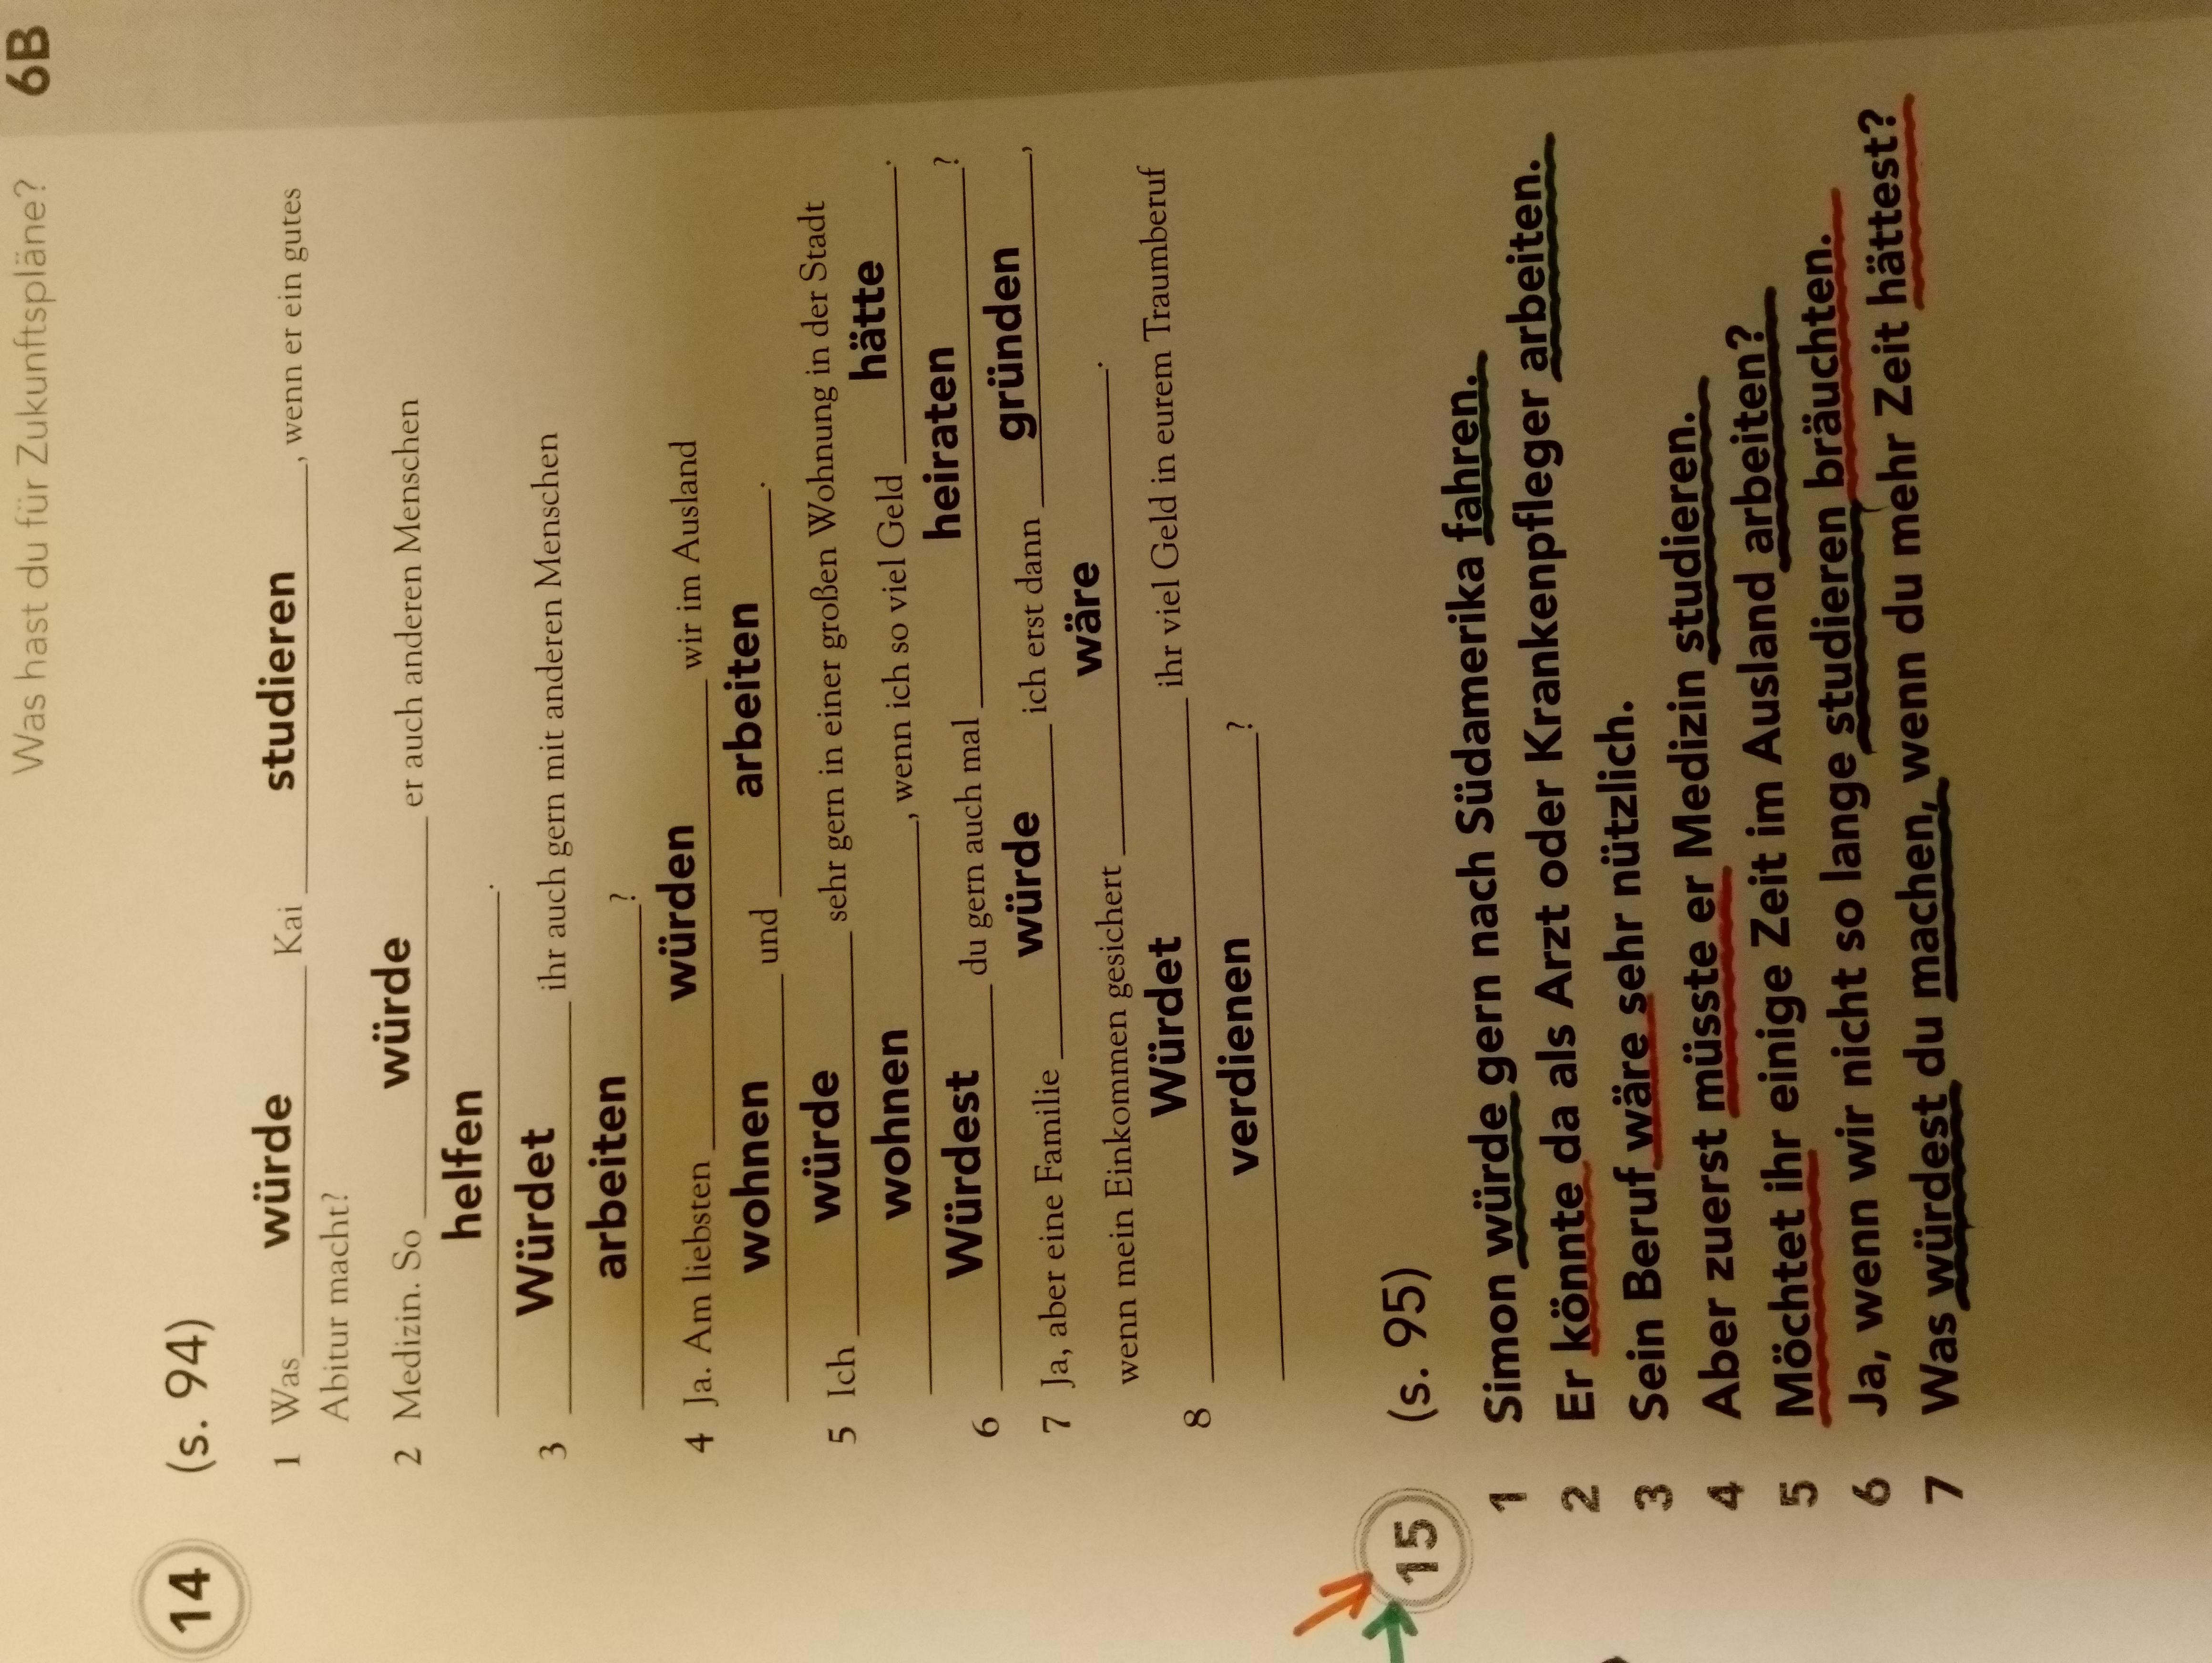 Was hast du für Zukunftspläne? 6B
14 (s. 94)
1 Was würde Kai studieren, wenn er ein gutes
Abitur macht?
2 Medizin. So würde er auch anderen Menschen
helfen.
3 Würdet ihr auch gern mit anderen Menschen
arbeiten?
4 Ja. Am liebsten würden wir im Ausland
wohnen und arbeiten.
5 Ich würde sehr gern in einer großen Wohnung in der Stadt
wohnen, wenn ich so viel Geld hätte.
6 Würdest du gern auch mal heiraten?
7 Ja, aber eine Familie würde ich erst dann gründen,
wenn mein Einkommen gesichert wäre.
8 Würdet ihr viel Geld in eurem Traumberuf
verdienen?
15 (s. 95)
1 Simon würde gern nach Südamerika fahren.
2 Er könnte da als Arzt oder Krankenpfleger arbeiten.
3 Sein Beruf wäre sehr nützlich.
4 Aber zuerst müsste er Medizin studieren.
5 Möchtet ihr einige Zeit im Ausland arbeiten?
6 Ja, wenn wir nicht so lange studieren bräuchten.
7 Was würdest du machen, wenn du mehr Zeit hättest?